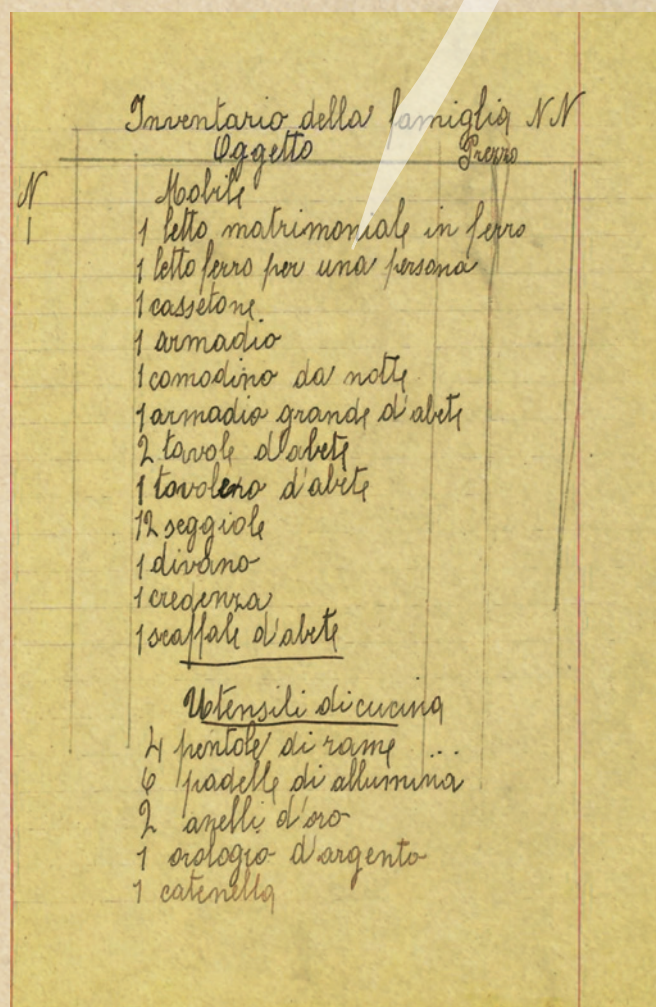 Inventario della famiglia NN
Oggetto Prezzo
N Mobile
1 1 letto matrimoniale in ferro
1 letto ferro per una persona
1 cassetone
1 armadio
1 comodino da notte
1 armadio grande d'abete
2 tavole d'abete
1 tavoleno d'abete
12 seggiole
1 divano
1 credenza
1 scaffale d'abete
Utensili di cucina
4 pentole di rame ...
6 padelle di allumina
2 anelli d'oro
1 orologio d'argento
1 catenella